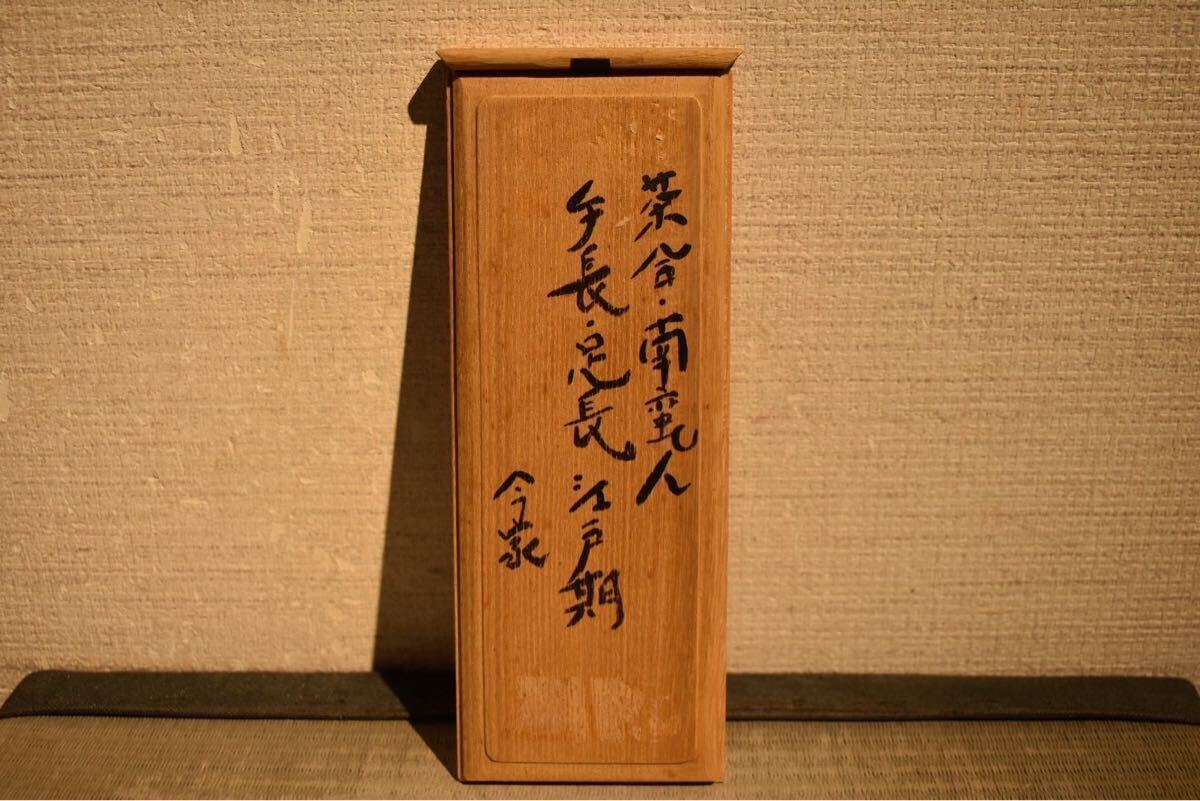 茶合・南蛮人
手長・足長 江戸期
今豪